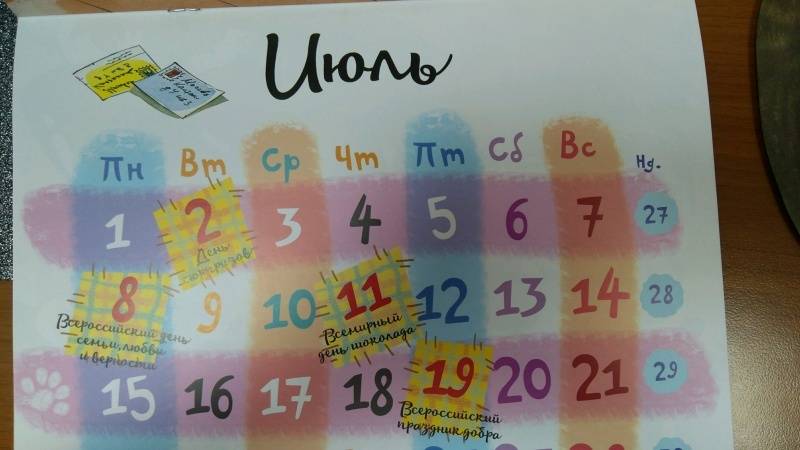 Июль
Пн Вт Ср Чт Пт Сб Вс Нд.
1 2 3 4 5 6 7 27
День
сюрпризов
8 9 10 11 12 13 14 28
Всероссийский день
семьи, любви
и верности
Всемирный
день шоколада
15 16 17 18 19 20 21 29
Всероссийский
праздник добра